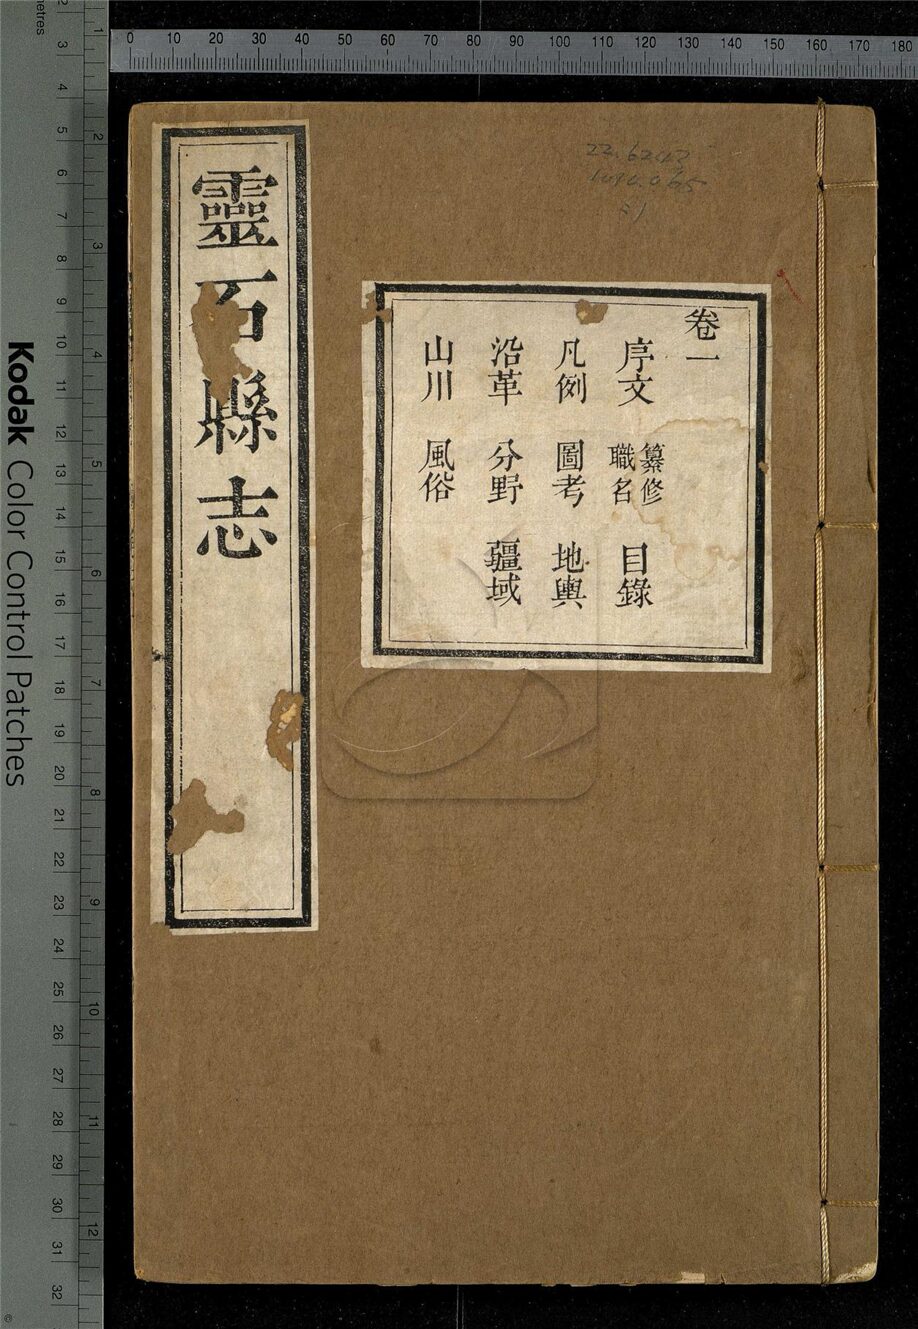 靈石縣志
卷一
序文 纂修職名 目錄
凡例 圖考 地輿
沿革 分野 疆域
山川 風俗
0 10 20 30 40 50 60 70 80 90 100 110 120 130 140 150 160 170 180
Kodak Color Control Patches
2 3 4 5 6 7 8 9 10 11 12 13 14 15 16 17 18 19 20 21 22 23 24 25 26 27 28 29 30 31 32
1 2 3 4 5 6 7 8 9 10 11 12